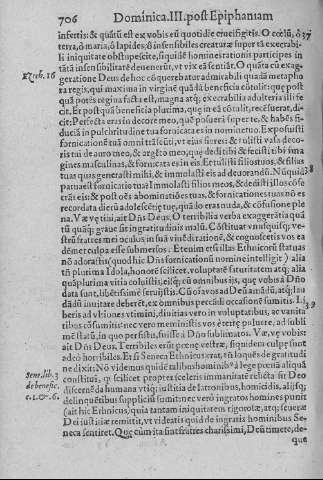 706 Dominica.III.post Epiphaniam
infertis: & quãtũ est ex vobis eũ quotidie crucifigitis. O cœlũ, ô 37
terra, ô maria, ô lapides, ô insensibiles creaturæ super tã execrabi-
li iniquitate obstupescite, siquidẽ homines rationis participes in
tãtã insensibilitatẽ devenerũt, vt vix eã sentiãt. O quãta cũ exag-
Ezech. 16
geratione Deus de hoc cõquerebatur admirabili quadã metapho
ra regis, qui maxima in virginẽ quãdã beneficia cõtulit: quæ post
quã potẽs regina facta est, magna atq; execrabilia adulteria illi fe-
cit. Et post quã beneficia plurima, quæ in eã cõtulit, recẽsuerat, di-
cit: Perfecta eras in decore meo, quẽ posuerã super te, & habẽs fi-
duciã in pulchritudine tua fornicata es in nomine tuo. Exposuisti
fornicationẽ tuã omni trãseũti, vt eius fieres: & tulisti vasa deco-
ris tui de auro meo, & argẽto meo, quę dedi tibi & fecisti tibi ima
gines masculinas, & fornicata es in eis. Et tulisti filios tuos, & filias
tuas quas generasti mihi, & immolasti eis ad deuorandũ. Nũquid 38
parua est fornicatio tua? Immolasti filios meos, & dedisti illos cõse
crãs eis: & post oẽs abominatiões tuas, & fornicationes tuas nõ es
recordata dierũ adolescẽtię tuę, quã do eras nuda, & cõfusione ple
na. Væ vę tibi, ait Dñs Deus. O terribilia verba exaggerãtia quã
tũ quãq; graue sit in gratitudinis malũ. Cõstituat vnusquisq; ve-
strũ fratres mei oculos in suã viuẽdi rationẽ, & cognoscetis vos ea
dẽ me culpa esse submersos. Etenim etsi illas Ethnicorũ statuas
nõ adorastis (quod hic Dñs fornicationũ nomine intelligit) alia
tñ plurima Idola, honorẽ scilicet, voluptatẽ saturitatem atq; alia
quàplurima vitia coluistis, eisq; cũ omnibus ijs, quę vobis à Dño
data sunt, libẽtissimè seruijstis. Cũ oś vos ad Deũ amãdũ, atq; lau
dãdũ inuitare deberẽt, ex omnibus peccãdi occasionẽ sumitis. Li 39
beris ad vltiones vtimini, diuitias vero in voluptatibus, ac vanita
tibus cõsumitis: nec vero meministis vos è terrę puluere, ad subli
mẽ statũ, in quo perstitis, fuisse à Dño sublimatos. Væ vę vobis:
ait Dñs Deus. Terribiles erũt pœnę vestræ, siquidem culpę sunt
adeò horribiles. Etsi Seneca Ethnicus erat, tñ loquẽs de gratitudi
ne dixit: Nõ videmus quidẽ talibus hominibꝰ à lege pœnã aliquã
Sene. lib. 3
constitui, qꝫ scilicet propter sceleris immanitatẽ relicta sit Deo
de benefic.
discernẽda humana vtiq; iustitia de latronibus, homicidis, alijsq;
c. 6.
delinquẽtibus suppliciũ sumitur: nec vero ingratos homines punit
(ait hic Ethnicus) quia tantam iniquitatem rigorosæ, atq; seueræ
Dei iustitiæ remittit, vt videatis quid de ingratis hominibus Se-
neca sentiret. Quę cũm ita sint fratres charissimi, Deũ timete, de-
que